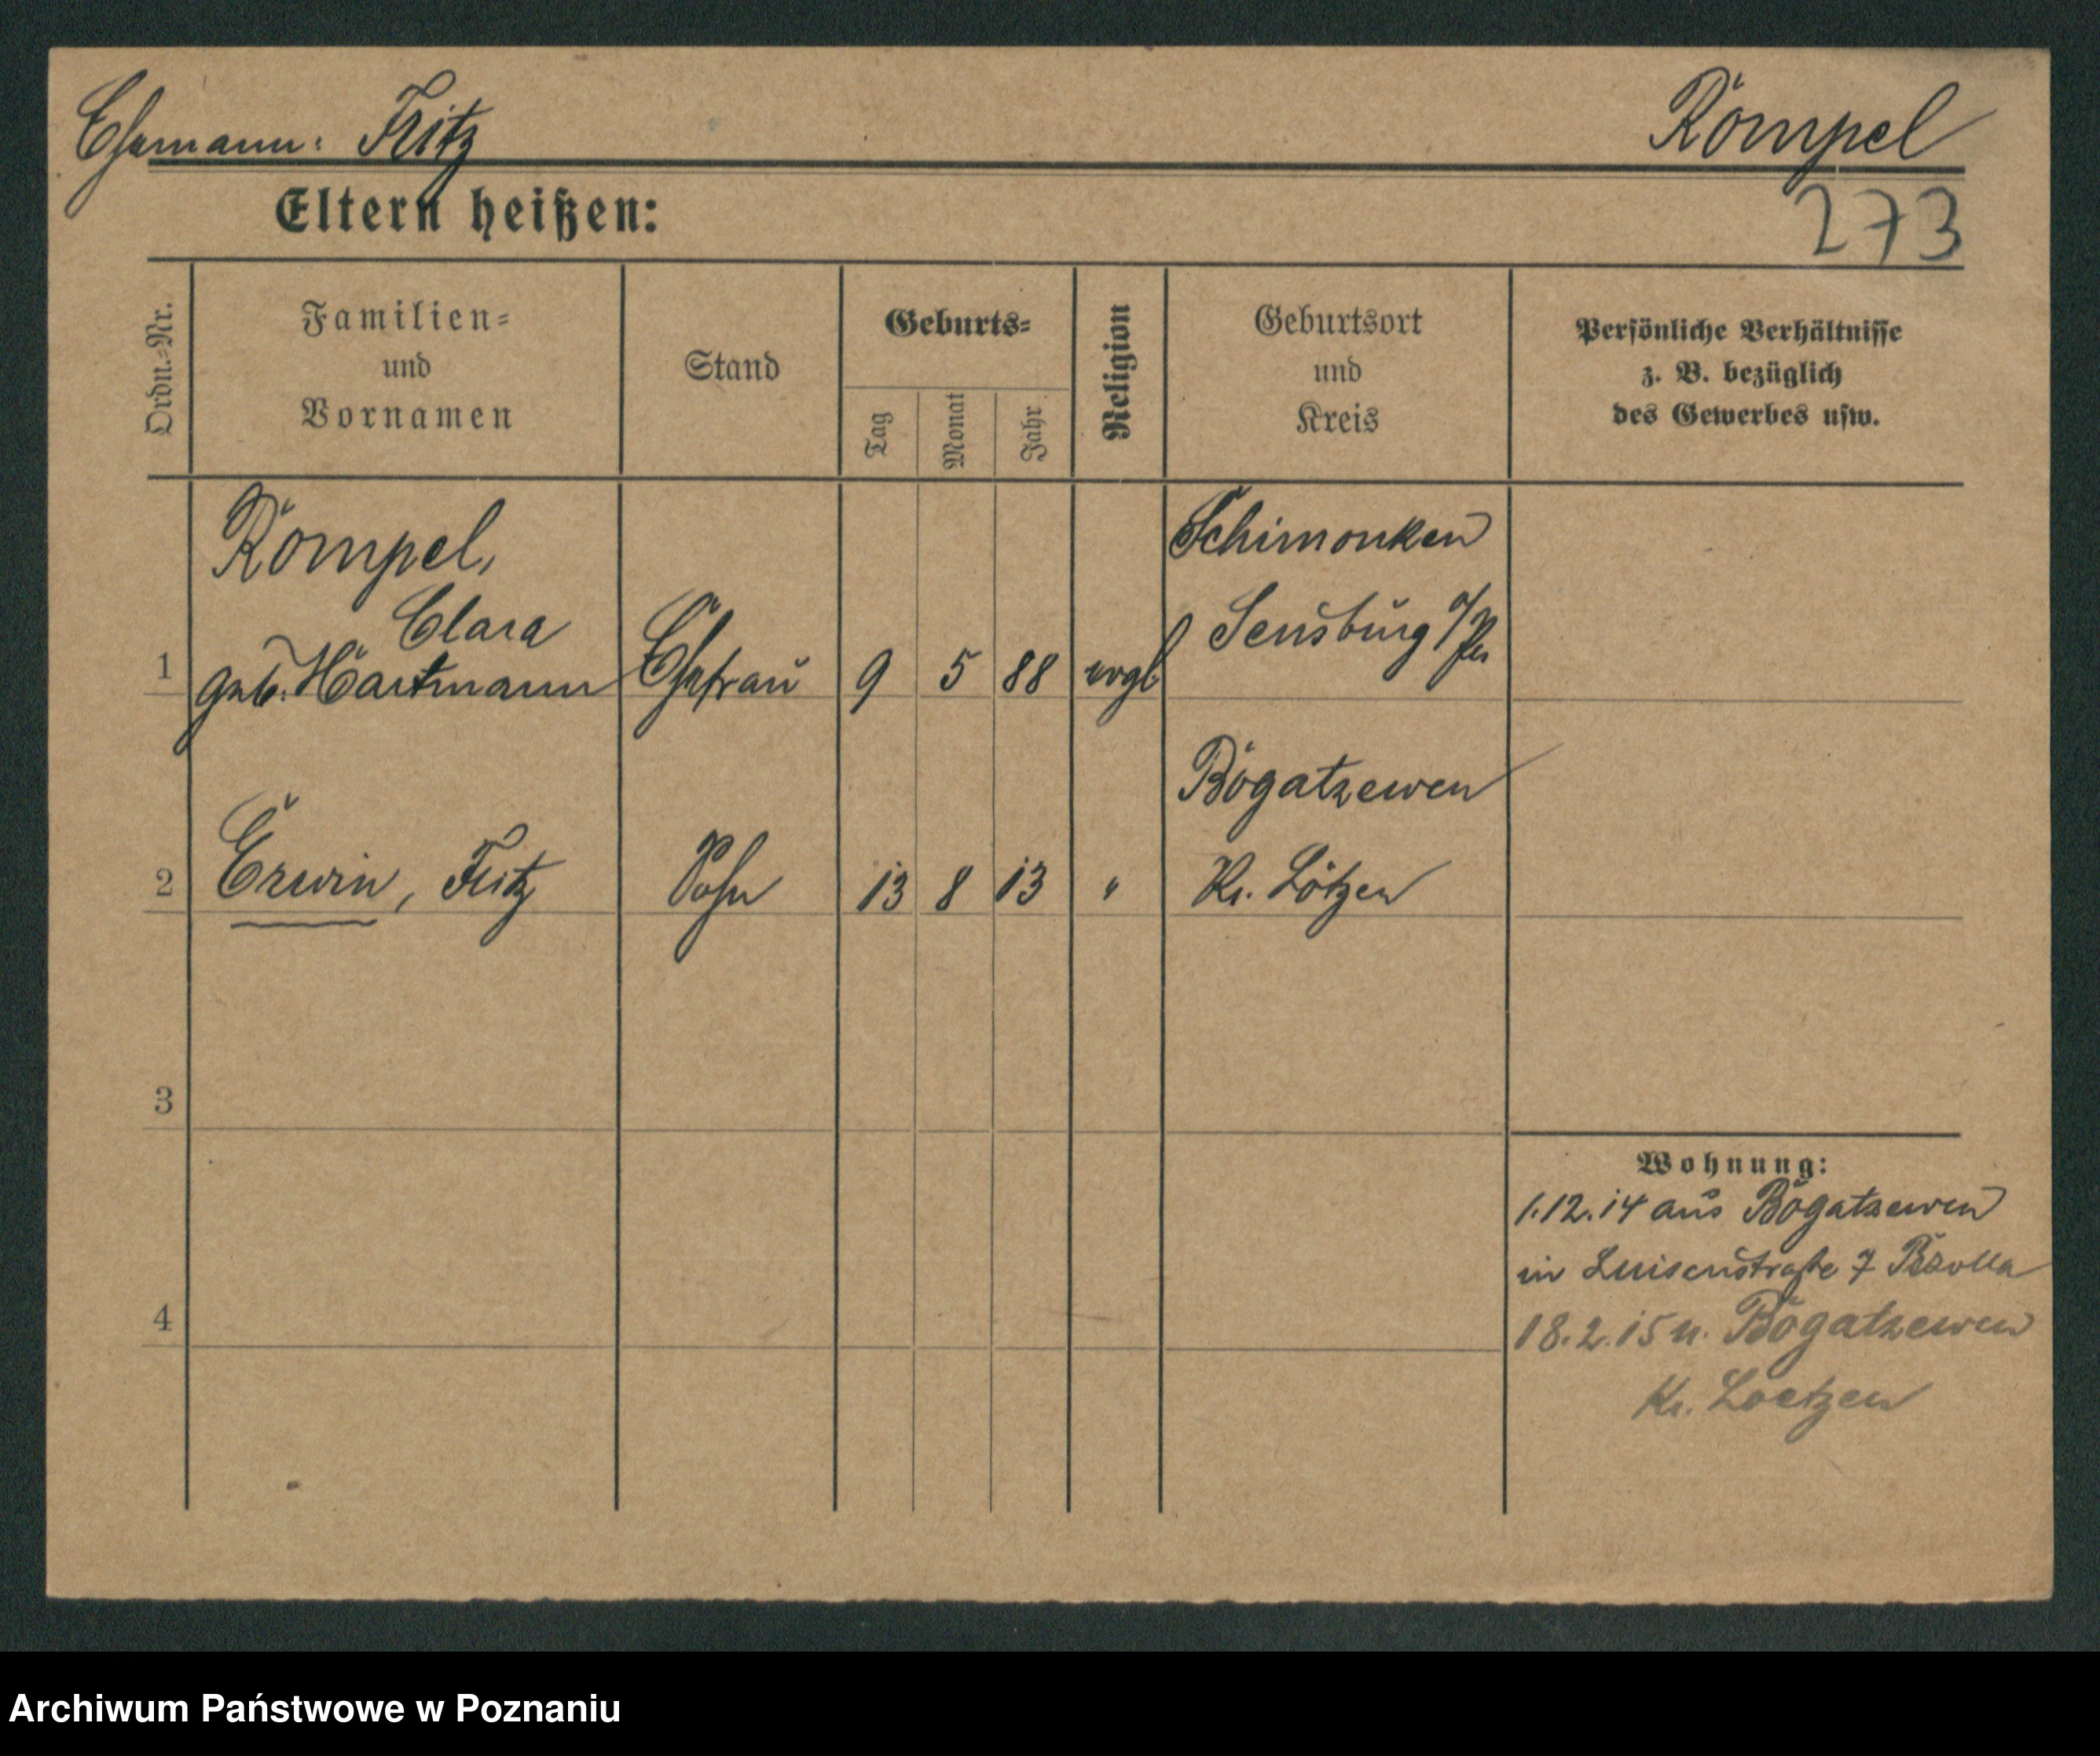 Ehemann: Fritz
Rompel
273
Eltern heißen:
Ordn.-Nr.
Familien-
und
Vornamen
Stand
Geburts-
Tag
Monat
Jahr
Religion
Geburtsort
und
Kreis
Persönliche Verhältnisse
z. B. bezüglich
des Gewerbes usw.
1
Rompel,
Clara
geb. Hartmann
Ehefrau
9
5
88
evgl
Schimonken
Sensburg
2
Erwin, Fritz
Sohn
13
8
13
"
Bogatzewen
Kr. Lötzen
3
4
Wohnung:
1.12.14 aus Bogatzewen
in Luisenstraße 7
18.2.15 n. Bogatzewen
Kr. Loetzen
Archiwum Państwowe w Poznaniu